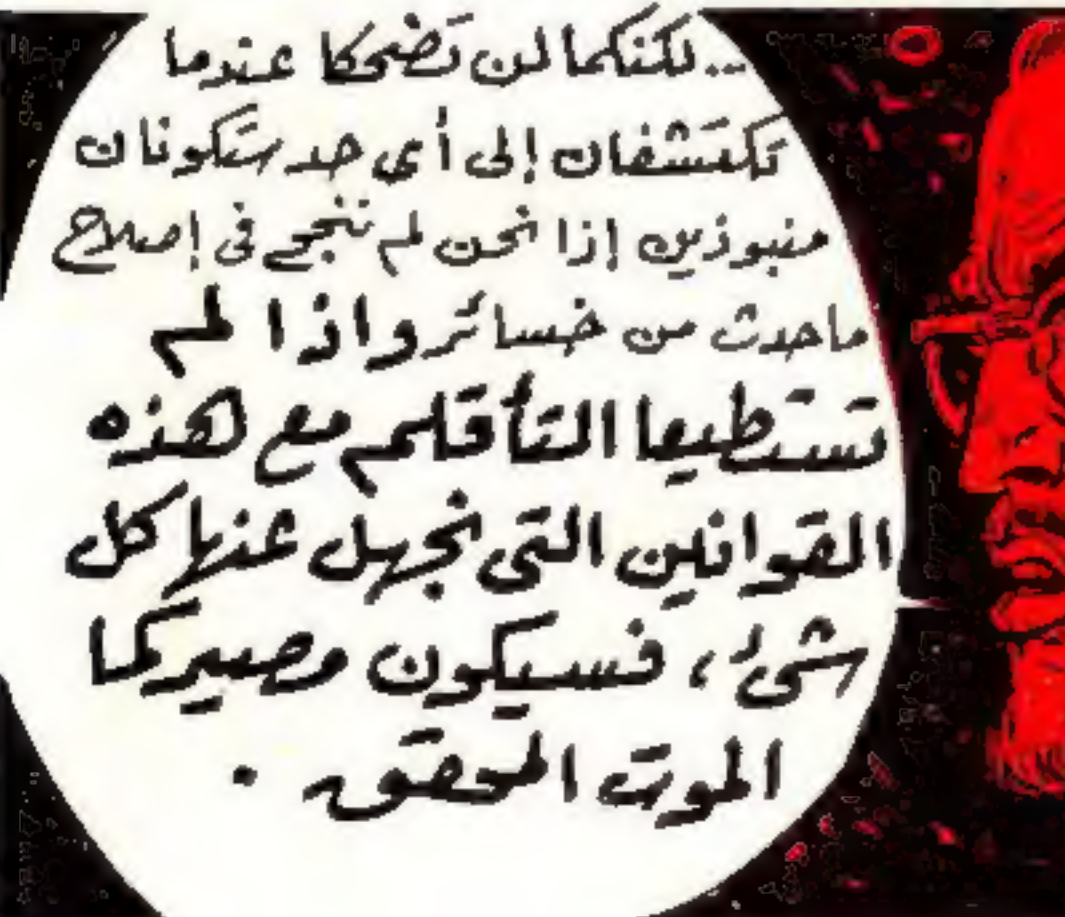 ..لكنكما لن تضحكا عندما
تكتشفان إلى أى حد ستكونان
منبوذين إذا نحن لم ننجح فى إصلاح
ماحدث من خسائر واذا لم
تستطيعا التأقلم مع هذه
القوانين التى نجهل عنها كل
شئ، فسيكون مصيركما
الموت المحقق .